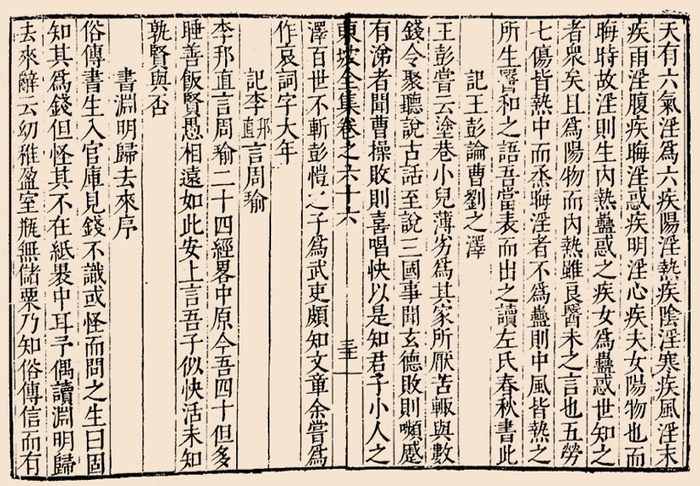 天有六氣淫爲六疾陽淫熱疾陰淫寒疾風淫末
疾雨淫腹疾晦淫惑疾明淫心疾夫女陽物也而
晦時故淫則生内熱蠱惑之疾女爲蠱惑世知之
者衆矣且爲陽物而内熱雖良醫未之言也五勞
七傷皆熱中而烝晦淫者不爲蠱則中風皆熱之
所生醫和之語吾當表而出之讀左氏春秋書此
記王彭論曹劉之澤
王彭嘗云塗巷小兒薄劣爲其家所厭苦輙與數
錢令聚聽說古話至說三國事聞玄德敗則嚬蹙
有涕者聞曹操敗則喜唱快以是知君子小人之
東坡全集卷之六十六
三十
澤百世不斬彭愷之子爲武吏頗知文章余嘗爲
作哀詞字大年
記李邦直言周瑜
李邦直言周瑜二十四經畧中原今吾四十但多
睡善飯賢愚相遠如此安上言吾子似快活未知
孰賢與否
書淵明歸去來序
俗傳書生入官庫見錢不識或怪而問之生曰固
知其爲錢但怪其不在紙褁中耳予偶讀淵明歸
去來辭云幼稚盈室瓶無儲粟乃知俗傳信而有